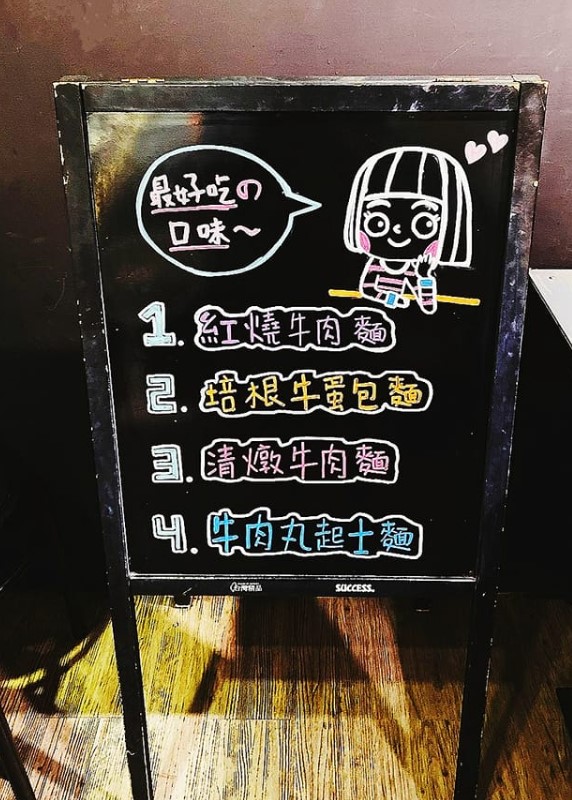 最好吃の
口味~
1. 紅燒牛肉麵
2. 培根牛蛋包麵
3. 清燉牛肉麵
4. 牛肉丸起士麵
SUCCESS.